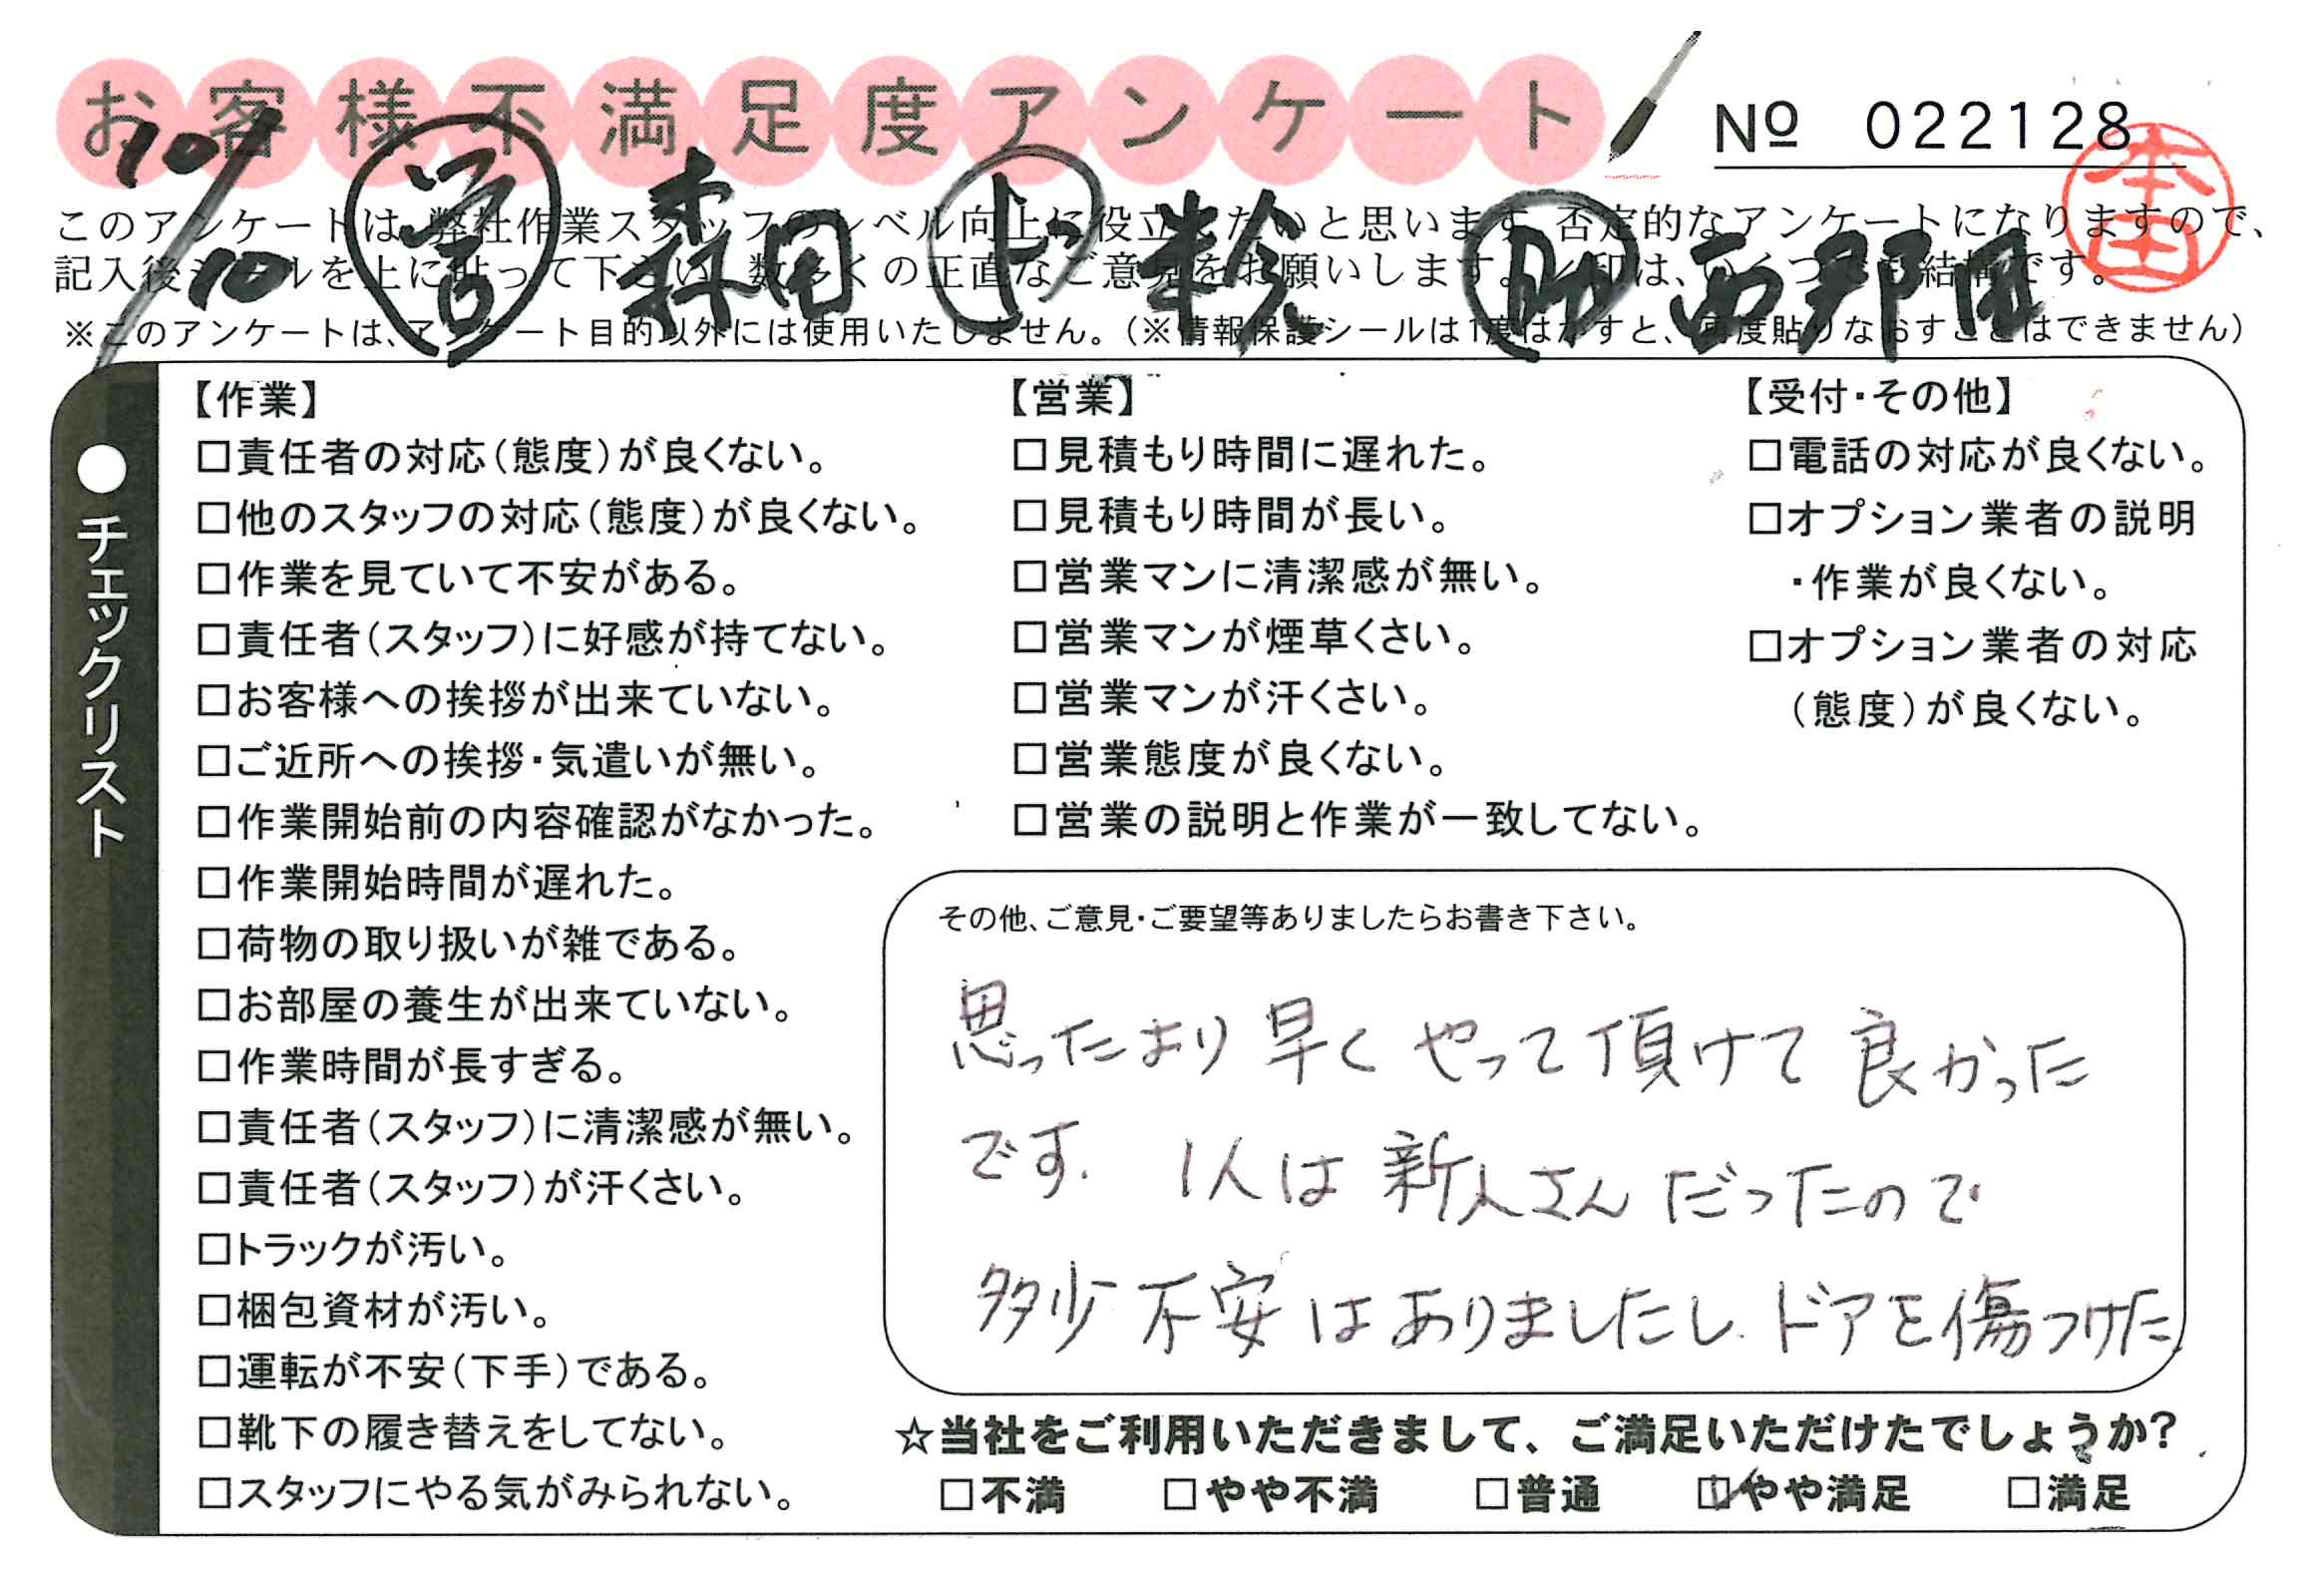 お客様不満足度アンケート
№ 022128
10/10 営 森田 ド 助
本田
このアンケートは、弊社作業スタッフのレベル向上に役立てたいと思います。否定的なアンケートになりますので、
記入後シールを上に貼って下さい。数多くの正直なご意見をお願いします。レ印は、いくつでも結構です。
※このアンケートは、アンケート目的以外には使用いたしません。（※情報保護シールは1度はがすと、再度貼りなおすことはできません）
●チェックリスト
【作業】
□責任者の対応（態度）が良くない。
□他のスタッフの対応（態度）が良くない。
□作業を見ていて不安がある。
□責任者（スタッフ）に好感が持てない。
□お客様への挨拶が出来ていない。
□ご近所への挨拶・気遣いが無い。
□作業開始前の内容確認がなかった。
□作業開始時間が遅れた。
□荷物の取り扱いが雑である。
□お部屋の養生が出来ていない。
□作業時間が長すぎる。
□責任者（スタッフ）に清潔感が無い。
□責任者（スタッフ）が汗くさい。
□トラックが汚い。
□梱包資材が汚い。
□運転が不安（下手）である。
□靴下の履き替えをしてない。
□スタッフにやる気がみられない。
【営業】
□見積もり時間に遅れた。
□見積もり時間が長い。
□営業マンに清潔感が無い。
□営業マンが煙草くさい。
□営業マンが汗くさい。
□営業態度が良くない。
□営業の説明と作業が一致してない。
【受付・その他】
□電話の対応が良くない。
□オプション業者の説明
・作業が良くない。
□オプション業者の対応
（態度）が良くない。
その他、ご意見・ご要望等ありましたらお書き下さい。
思ったより早くやって頂けて良かった
です。1人は新人さんだったので
多少不安はありましたし、ドアを傷つけた
☆当社をご利用いただきまして、ご満足いただけたでしょうか？
□不満 □やや不満 □普通 ☑やや満足 □満足